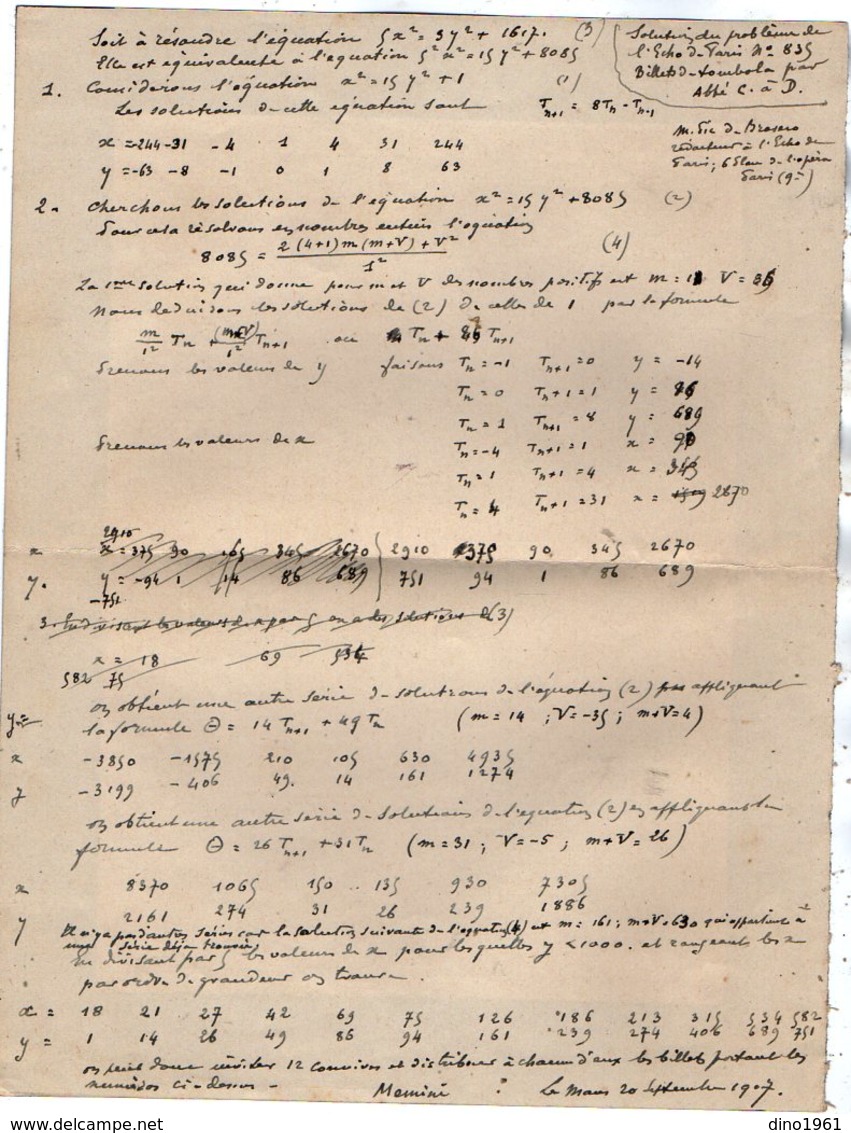 Soit à résoudre l'équation 5x² = 3y² + 1617. (3)
Elle est équivalente à l'equation 5²x² = 15y² + 8085
Solution du problème de
l'Echo de Paris N° 835
Billets de tombola par
Abbé C. à D.
1. Considerons l'équation x² = 15y² + 1 (1)
Les solutions de cette équation sont Tn+1 = 8Tn - Tn-1
x = -244 -31 -4 1 4 31 244
y = -63 -8 -1 0 1 8 63
M. Fic de
rédacteur à l'Echo de
Paris, 6 Place de l'opéra
Paris (9e)
2. Cherchons les solutions de l'équation x² = 15y² + 8085 (2)
Pour cela résolvons en nombres entiers l'equation
8085 = 2(4+1)m(m+V) + V² / 1² (4)
La 1ere solution qui donne pour m et V des nombres positifs est m = 1 V =
Nous deduisons les solutions de (2) de celles de 1 par la formule
m/1² Tn + (m+V)/1² Tn+1 ou Tn + 86 Tn+1
Prenons les valeurs de y faisons Tn = -1 Tn+1 = 0 y = -14
Tn = 0 Tn+1 = 1 y = 86
Tn = 1 Tn+1 = 8 y = 689
Prenons les valeurs de x Tn = -4 Tn+1 = 1 x = 90
Tn = 1 Tn+1 = 4 x = 345
Tn = 4 Tn+1 = 31 x = 2670
2910
x x = 375 90 165 345 2670 2910 375 90 345 2670
y. y = -94 1 14 86 689 751 94 1 86 689
-751
3. En divisant les valeurs de x par 5 on a les solutions de (3)
x = 18 69 534
582 75
on obtient une autre serie de solutions de l'équation (2) en appliquant
la formule Θ = 14 Tn+1 + 49 Tn (m = 14 ; V = -35 ; m+V = 4)
y =
x -3850 -1575 210 105 630 4935
y -3199 -406 49. 14 161 1274
on obtient une autre serie de solutions de l'equation (2) en appliquant la
formule Θ = 26 Tn+1 + 31 Tn (m = 31 ; V = -5 ; m+V = 26)
x 8370 1065 150 135 930 7305
y 2161 274 31 26 239 1886
Il n'y a pas d'autres séries car la solution suivante de l'equation (4) est m = 161 ; m+V = 630 qui appartient à
une série déja trouvée
En divisant par 5 les valeurs de x pour lesquelles y < 1000. et rangeant les x
par ordre de grandeur on trouve.
x = 18 21 27 42 69 75 126 186 213 315 534 582
y = 1 14 26 49 86 94 161 239 274 406 689 751
on peut donc inviter 12 convives et distribuer à chacun d'eux les billets portant les
numéros ci-dessus -
Memini Le Mans 20 Septembre 1907.
delcampe.net
dino1961